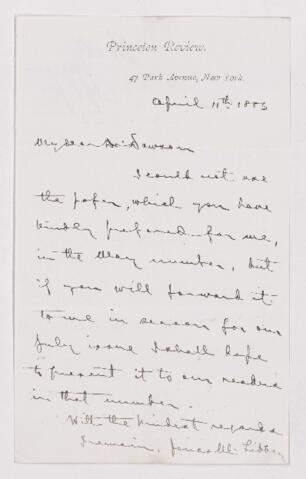 Princeton Review.
47 Park Avenue, New York.
April 11th 1883
My dear Dr Dawson
I could not use
the paper, which you have
kindly prepared for me,
in the May number, but
if you will forward it
to me in season for our
July issue I shall hope
to present it to our readers
in that number.
With the kindest regards
I remain, Jonas M. Libbey